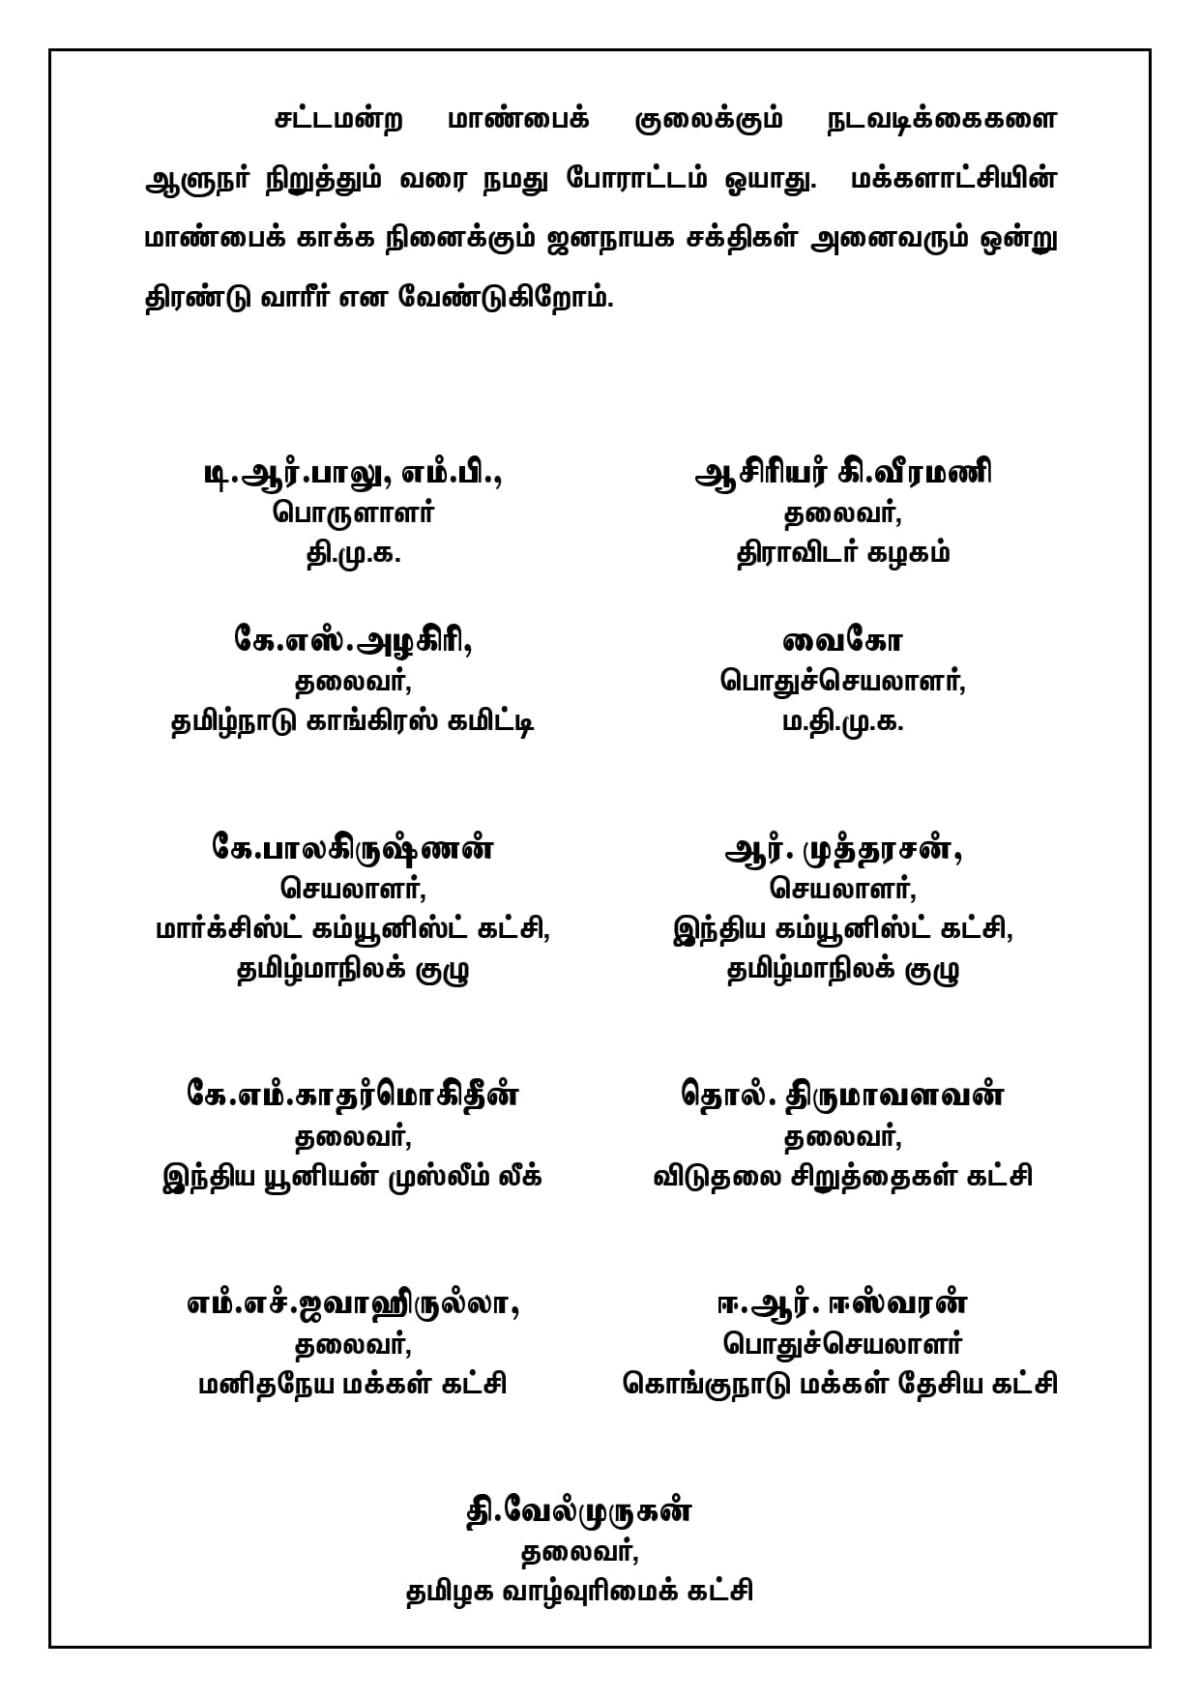 சட்டமன்ற மாண்பைக் குலைக்கும் நடவடிக்கைகளை
ஆளுநர் நிறுத்தும் வரை நமது போராட்டம் ஓயாது. மக்களாட்சியின்
மாண்பைக் காக்க நினைக்கும் ஜனநாயக சக்திகள் அனைவரும் ஒன்று
திரண்டு வாரீர் என வேண்டுகிறோம்.
டி.ஆர்.பாலு, எம்.பி.,
பொருளாளர்
தி.மு.க.
ஆசிரியர் கி.வீரமணி
தலைவர்,
திராவிடர் கழகம்
கே.எஸ்.அழகிரி,
தலைவர்,
தமிழ்நாடு காங்கிரஸ் கமிட்டி
வைகோ
பொதுச்செயலாளர்,
ம.தி.மு.க.
கே.பாலகிருஷ்ணன்
செயலாளர்,
மார்க்சிஸ்ட் கம்யூனிஸ்ட் கட்சி,
தமிழ்மாநிலக் குழு
ஆர். முத்தரசன்,
செயலாளர்,
இந்திய கம்யூனிஸ்ட் கட்சி,
தமிழ்மாநிலக் குழு
கே.எம்.காதர்மொகிதீன்
தலைவர்,
இந்திய யூனியன் முஸ்லீம் லீக்
தொல். திருமாவளவன்
தலைவர்,
விடுதலை சிறுத்தைகள் கட்சி
எம்.எச்.ஜவாஹிருல்லா,
தலைவர்,
மனிதநேய மக்கள் கட்சி
ஈ.ஆர். ஈஸ்வரன்
பொதுச்செயலாளர்
கொங்குநாடு மக்கள் தேசிய கட்சி
தி.வேல்முருகன்
தலைவர்,
தமிழக வாழ்வுரிமைக் கட்சி